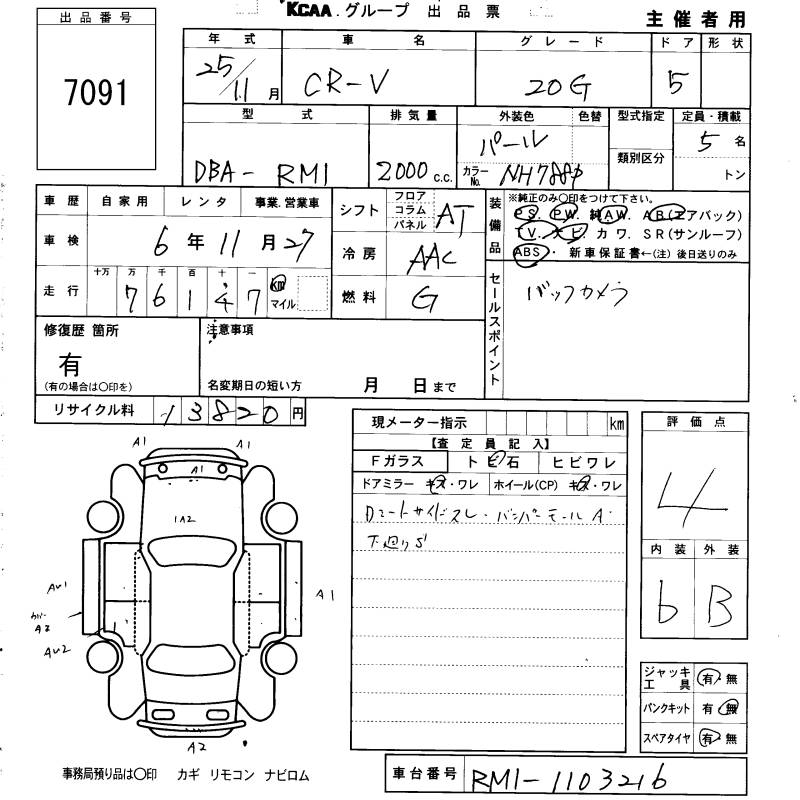 KCAA.グループ 出品票
主催者用
出品番号
7091
年式 車名 グレード ドア 形状
25/11月 CR-V 20G 5
型式 排気量 外装色 色替 型式指定 定員・積載
DBA-RM1 2000c.c. パール カラーNo. NH788P 類別区分 5名
トン
車歴 自家用 レンタ 事業.営業車
車検 6年11月27
走行 十万 万 千 百 十 一
76147 km マイル
シフト フロア コラム パネル AT
冷房 AAC
燃料 G
装備品 ※純正のみ○印をつけて下さい。
PS. PW. 純AW. AB(エアバック)
TV. ナビ カワ. SR(サンルーフ)
ABS・ 新車保証書←(注)後日送りのみ
セールスポイント
バックカメラ
修復歴 箇所
有
(有の場合は○印を)
注意事項
名変期日の短い方 月 日まで
リサイクル料 13820円
現メーター指示 km
【査定員記入】
Fガラス トビ石 ヒビワレ
ドアミラー キズ・ワレ ホイール(CP) キズ・ワレ
シートサイドスレ・バンパーモールA
下廻りS
評価点
4
内装 外装
b B
ジャッキ工具 有・無
パンクキット 有・無
スペアタイヤ 有・無
A1 A1
A1
1A2
AU1
A1
カバー
A2
1
AU2
A2
事務局預り品は○印 カギ リモコン ナビロム
車台番号 RM1-1103216